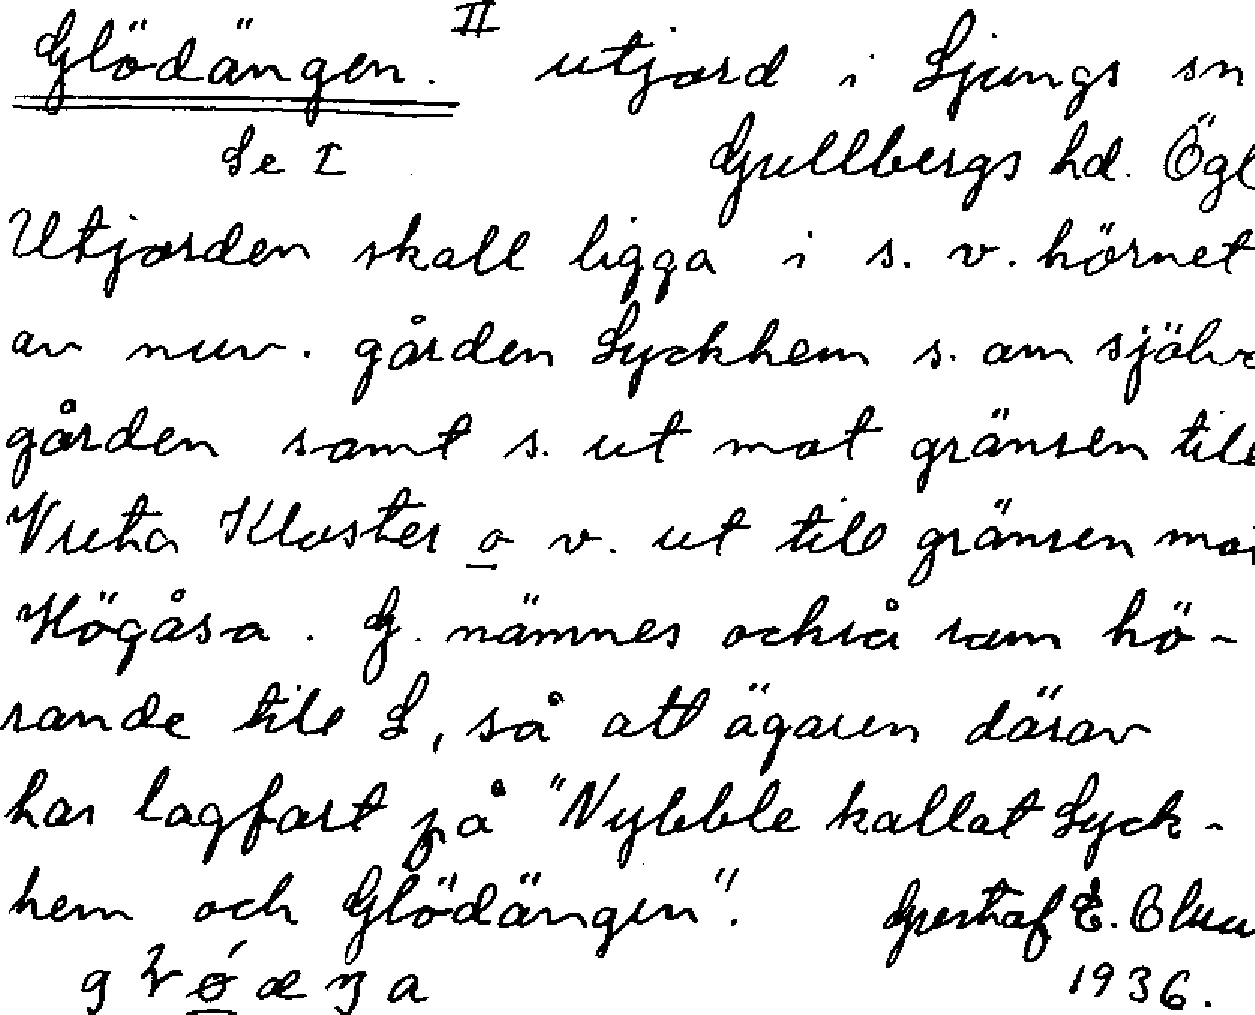 Glödängen. II utjord i Ljungs sn
Se I Gullbergs hd. Ögl
Utjorden skall ligga i s. v. hörnet
av nuv. gården Lyckhem s. om själva
gården samt s. ut mot gränsen till
Vreta Kloster o v. ut till gränsen mot
Högåsa. G. nämnes också som hö-
rande till L, så att ägaren därav
har lagfart på "Nybble kallat Lyck-
hem och Glödängen".
Gustaf E.
1936.